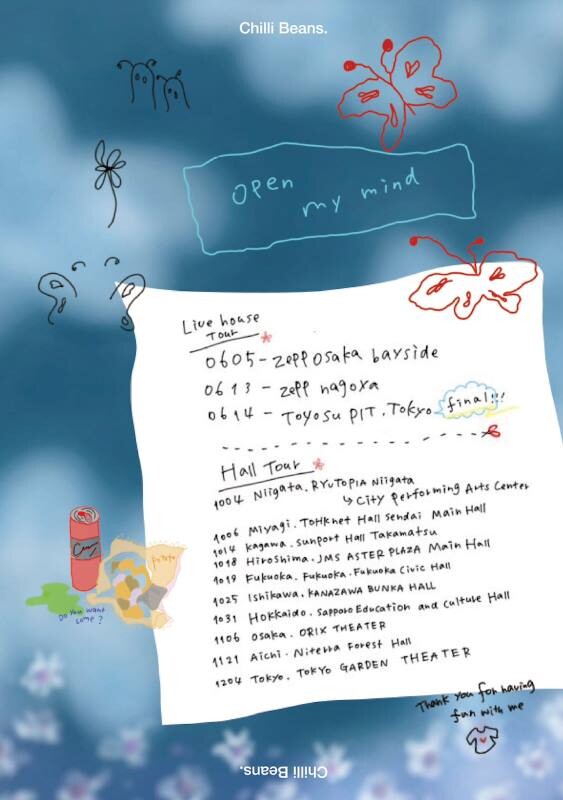 Chilli Beans.
open
my mind
Live house
Tour
0605 - Zepp Osaka bayside
0613 - Zepp nagoya
0614 - TOYOSU PIT. Tokyo final!!!
Hall Tour
1004 Niigata. RYUTOPIA Niigata
City Performing Arts Center
1006 Miyagi. TOHKnet Hall Sendai Main Hall
1014 Kagawa. Sunport Hall Takamatsu
1018 Hiroshima. JMS ASTER PLAZA Main Hall
1019 Fukuoka. Fukuoka. Fukuoka Civic Hall
1025 Ishikawa. KANAZAWA BUNKA HALL
1031 Hokkaido. Sapporo Education and Culture Hall
1106 Osaka. ORIX THEATER
1121 Aichi. Niterra Forest Hall
1204 Tokyo. TOKYO GARDEN THEATER
Potato
Do you want
some?
Thank you for having
fun with me
Chilli Beans.